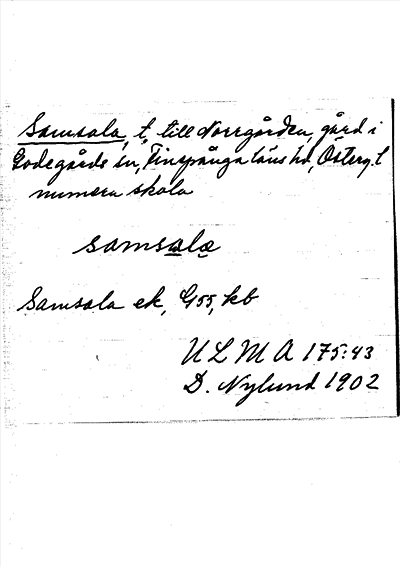 Samsala, t. till Norrgården, gård i
Godegårds sn, Finspånga läns hd, Österg. l
numera skola
samsala
Samsala ek, G55, kb
ULMA 175:43
D. Nylund 1902